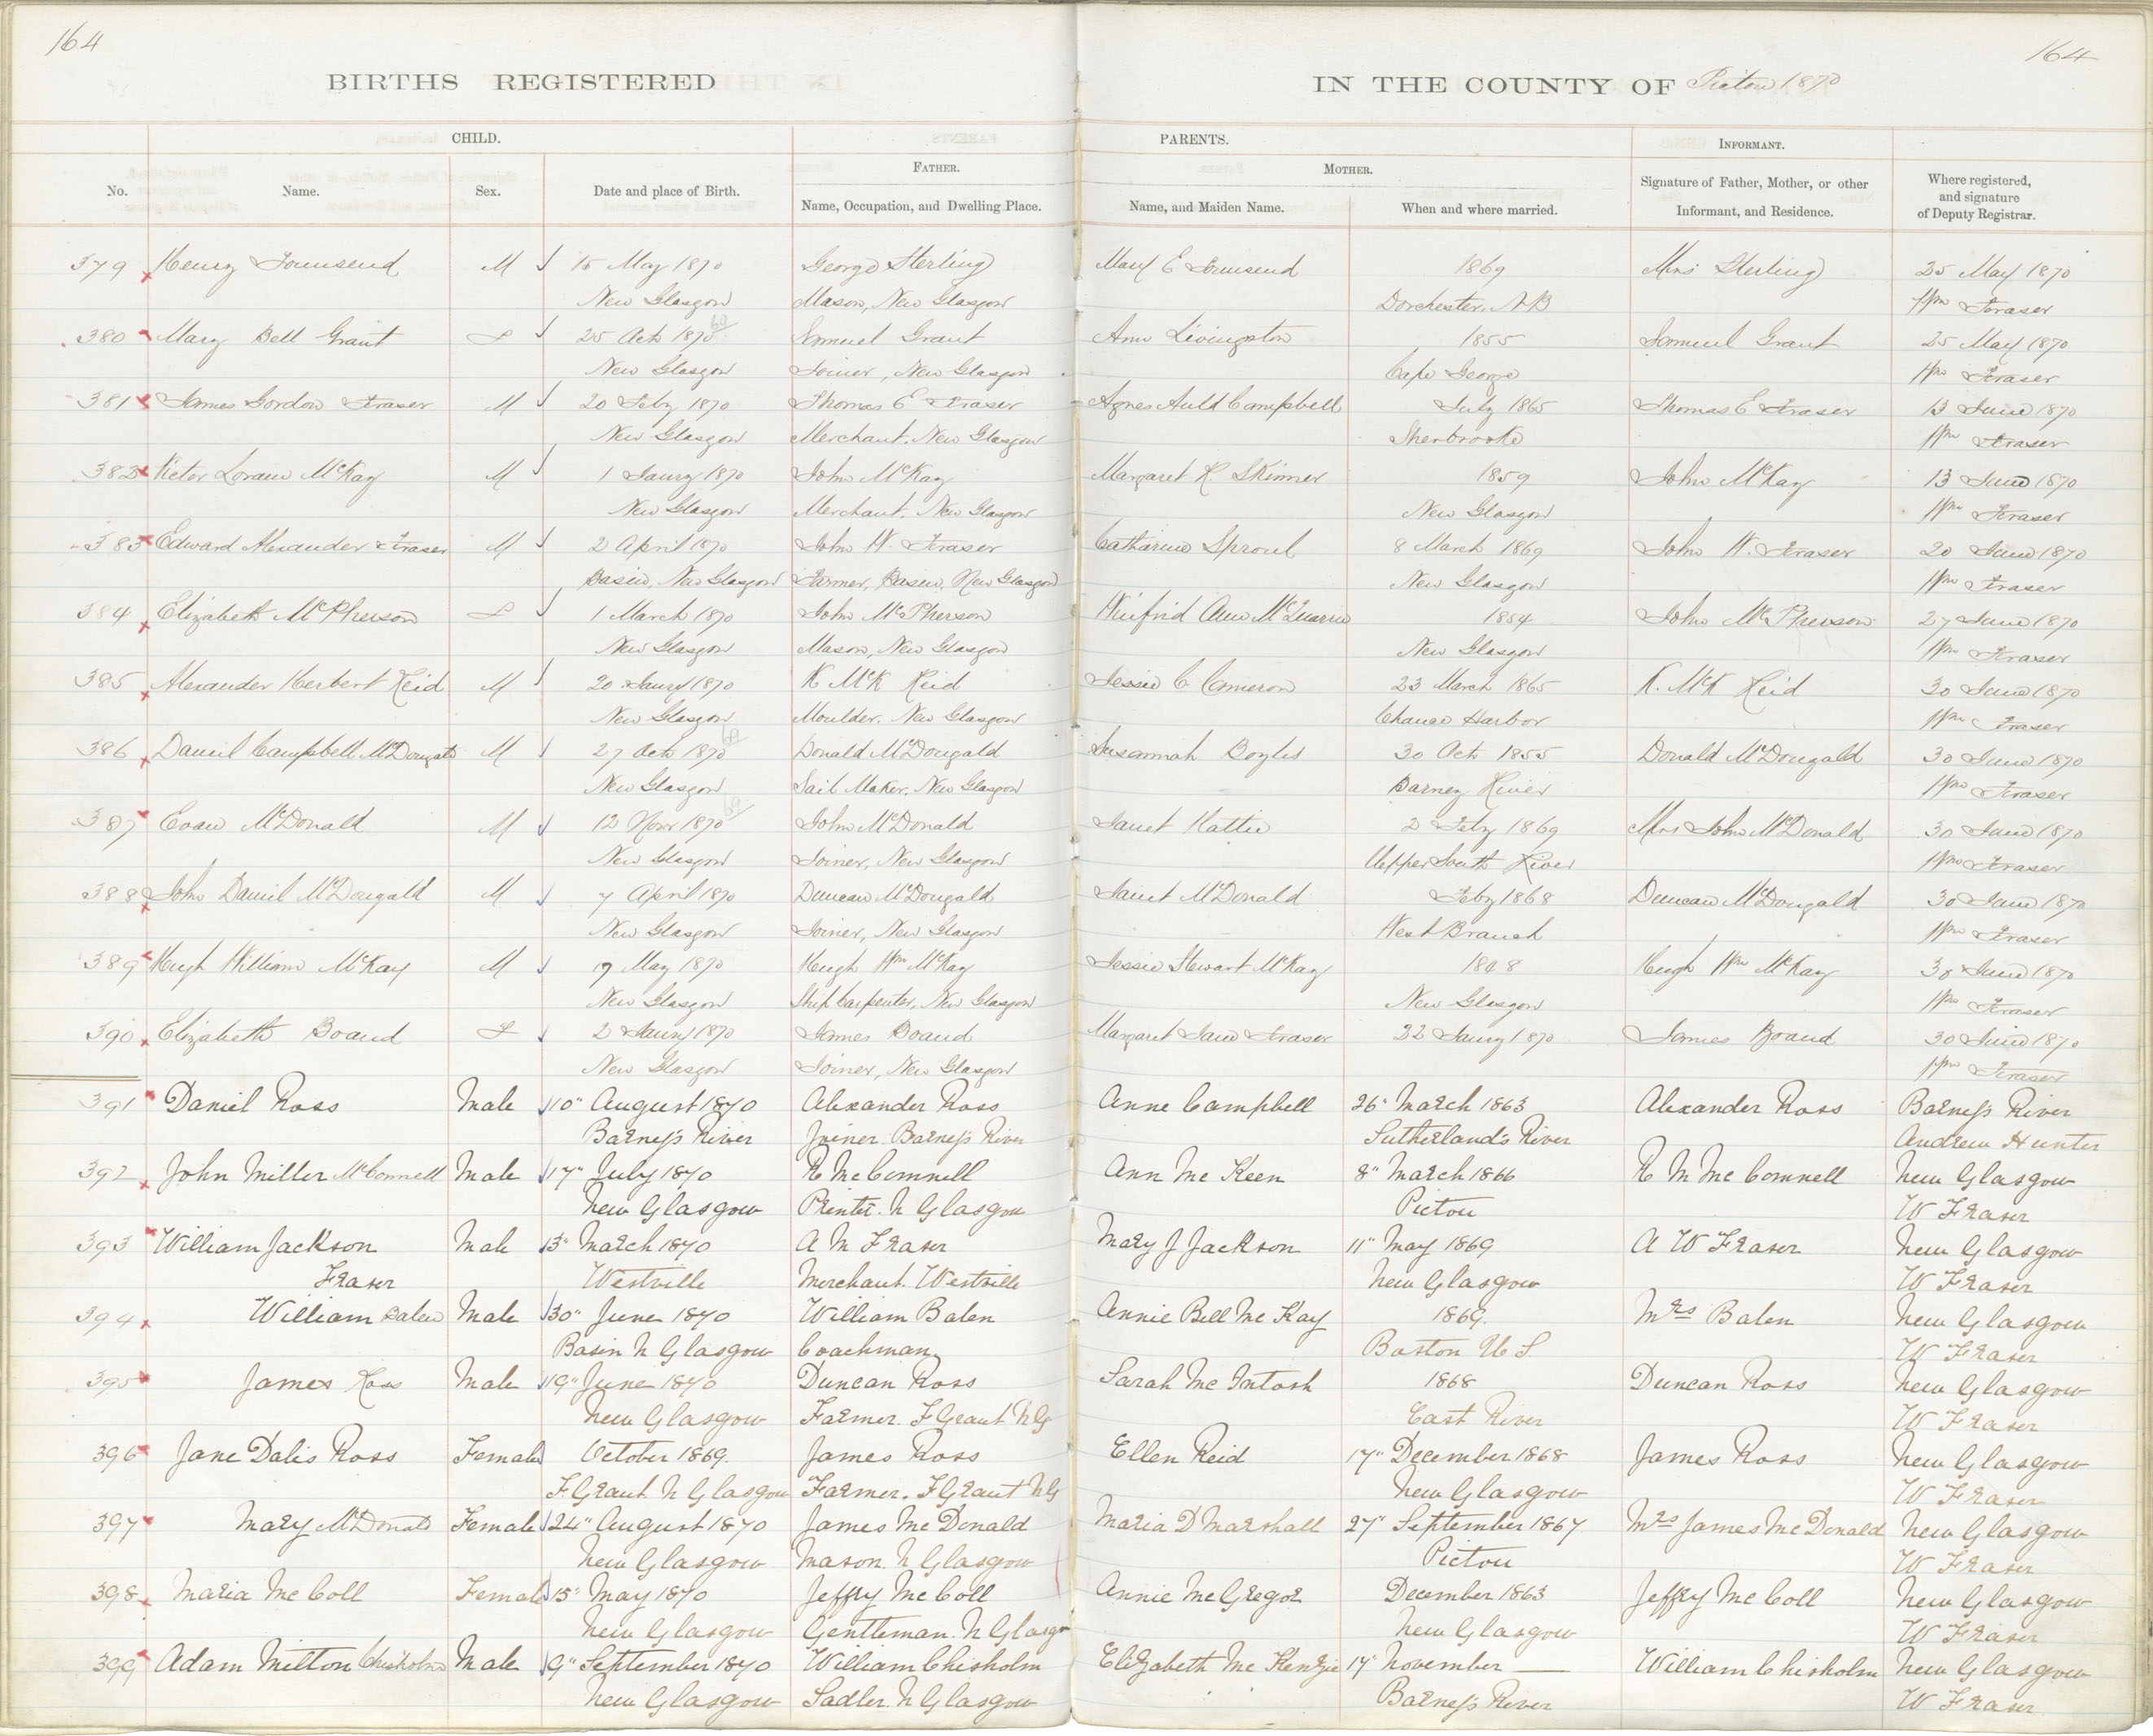 164
164
BIRTHS REGISTERED
IN THE COUNTY OF Pictou 1870
CHILD.
PARENTS.
INFORMANT.
No.
Name.
Sex.
Date and place of Birth.
FATHER.
Name, Occupation, and Dwelling Place.
MOTHER.
Name, and Maiden Name.
When and where married.
Signature of Father, Mother, or other
Informant, and Residence.
Where registered,
and signature
of Deputy Registrar.
379 Henry Townsend M 15 May 1870 George Sterling Mary E Townsend 1869 Mrs Sterling 25 May 1870
New Glasgow Mason, New Glasgow Dorchester, N B Wm Fraser
380 Mary Bell Grant F 25 Oct 1870 69 Samuel Grant Ann Livingston 1855 Samuel Grant 25 May 1870
New Glasgow Joiner, New Glasgow Cape George Wm Fraser
381 James Gordon Fraser M 20 Feby 1870 Thomas E Fraser Agnes Auld Campbell July 1865 Thomas E Fraser 13 June 1870
New Glasgow Merchant. New Glasgow Sherbrooke Wm Fraser
382 Victor Loraine McKay M 1 Jany 1870 John McKay Margaret R. Skinner 1859 John McKay 13 June 1870
New Glasgow Merchant. New Glasgow New Glasgow Wm Fraser
383 Edward Alexander Fraser M 2 April 1870 John W. Fraser Catharine Sproul 8 March 1869 John W. Fraser 20 June 1870
Basin, New Glasgow Farmer, Basin, New Glasgow New Glasgow Wm Fraser
384 Elizabeth McPherson F 1 March 1870 John McPherson Winfrid Ann McQuarrie 1854 John McPherson 27 June 1870
New Glasgow Mason, New Glasgow New Glasgow Wm Fraser
385 Alexander Herbert Reid M 20 Jany 1870 K McK Reid Jessie C. Cameron 23 March 1865 K. McK Reid 30 June 1870
New Glasgow Moulder. New Glasgow Chance Harbor Wm Fraser
386 Daniel Campbell McDougald M 27 Oct 1870 69 Donald McDougald Susannah Boyles 30 Oct 1855 Donald McDougald 30 June 1870
New Glasgow Sail Maker, New Glasgow Barney River Wm Fraser
387 Evan McDonald M 12 Novr 1870 69 John McDonald Janet Hattie 2 Feby 1869 Mrs John McDonald 30 June 1870
New Glasgow Joiner, New Glasgow Upper South River Wm Fraser
388 John Daniel McDougald M 7 April 1870 Duncan McDougald Janet McDonald Feby 1868 Duncan McDougald 30 June 1870
New Glasgow Joiner, New Glasgow West Branch Wm Fraser
389 Hugh William McKay M 7 May 1870 Hugh Wm McKay Jessie Stewart McKay 1848 Hugh Wm McKay 30 June 1870
New Glasgow Ship Carpenter, New Glasgow New Glasgow Wm Fraser
390 Elizabeth Boand F 2 Jany 1870 James Boand Margaret Jane Fraser 22 Jany 1870 James Boand 30 June 1870
New Glasgow Joiner, New Glasgow Wm Fraser
391 Daniel Ross Male 10" August 1870 Alexander Ross Anne Campbell 26" March 1863 Alexander Ross Barney's River
Barney's River Joiner. Barney's River Sutherland's River Andrew Hunter
392 John Miller McConnell Male 17" July 1870 R McConnell Ann McKeen 8" March 1866 R M McConnell New Glasgow
New Glasgow Printer. N Glasgow Pictou W Fraser
393 William Jackson Male 3" March 1870 A M Fraser Mary J Jackson 11" May 1869 A W Fraser New Glasgow
Fraser Westville Merchant. Westville New Glasgow W Fraser
394 William Balen Male 30" June 1870 William Balen Annie Bell McKay 1869. Mrs Balen New Glasgow
Basin N Glasgow Coachman Boston U S. W Fraser
395 James Ross Male 19" June 1870 Duncan Ross Sarah McIntosh 1868 Duncan Ross New Glasgow
New Glasgow Farmer. F Grant N G East River W Fraser
396 Jane Dalis Ross Female October 1869. James Ross Ellen Reid 17" December 1868 James Ross New Glasgow
F. Grant N Glasgow Farmer. F Grant N G New Glasgow W Fraser
397 Mary McDonald Female 24" August 1870 James McDonald Maria D Marshall 27" September 1867 Mrs James McDonald New Glasgow
New Glasgow Mason. N Glasgow Pictou W Fraser
398 Maria McColl Female 15" May 1870 Jeffry McColl Annie McGregor December 1863 Jeffry McColl New Glasgow
New Glasgow Gentleman. N Glasgo New Glasgow W Fraser
399 Adam Milton Chisholm Male 9" September 1870 William Chisholm Elizabeth McKenzie 14" November — William Chisholm New Glasgow
New Glasgow Sadler. N Glasgow Barney's River W Fraser